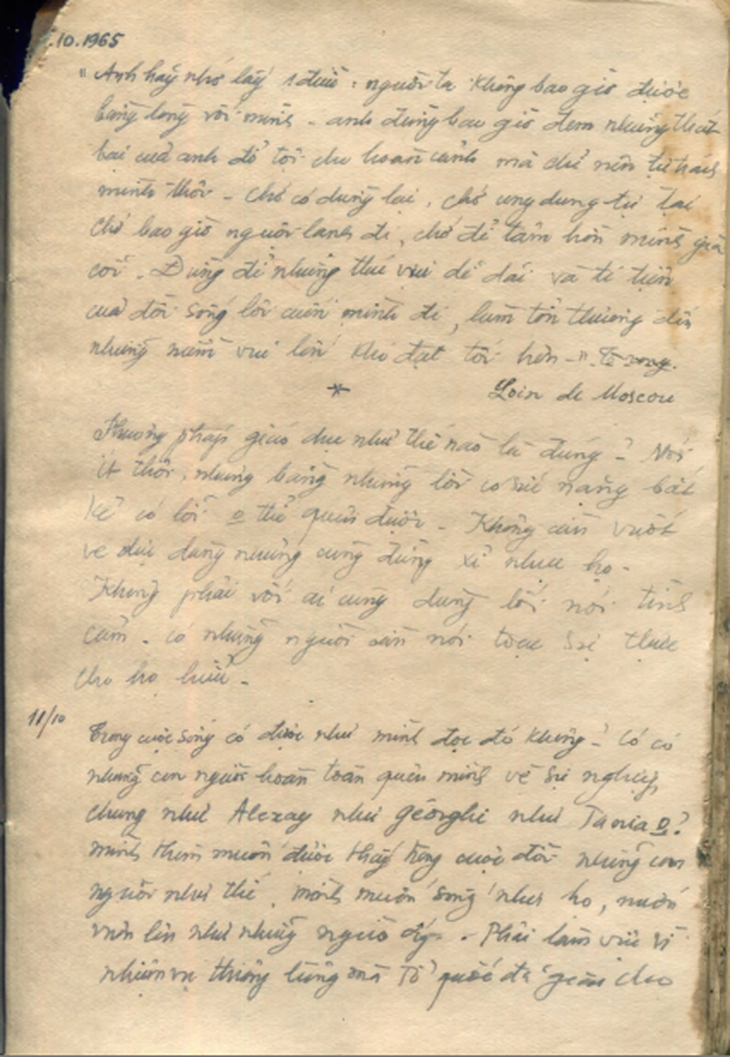 .10.1965
"Anh hãy nhớ lấy 1 điều: người ta không bao giờ được
bằng lòng với mình - anh đừng bao giờ đem những thất
bại của anh đổ tội cho hoàn cảnh mà chỉ nên tự trách
mình thôi - chớ có dừng lại, chớ ung dung tự tại
chớ bao giờ nguôi lạnh đi, chớ để tâm hồn mình già
cỗi. Đừng để những thú vui dễ dãi và ti tiện
của đời sống lôi cuốn mình đi, làm tổn thương đến
những niềm vui lớn khó đạt tới hơn -"
* Loin de Moscou
Phương pháp giáo dục như thế nào là đúng - Nói
ít thôi, nhưng bằng những lời có sức nặng bắt
kẻ có lỗi o thể quên được - Không cần vuốt
ve dịu dàng nhưng cũng đừng xỉ nhục họ -
Không phải với ai cũng dùng lối nói tình
cảm - có những người cần nói toạc sự thực
cho họ hiểu -
11/10
Trong cuộc sống có được như mình đọc đó không? Có có
những con người hoàn toàn quên mình về sự nghiệp
chung như Alexay như Géorghi như Tania o?
mình thèm muốn được thấy trong cuộc đời những con
người như thế, mình muốn sống như họ, muốn
vươn lên như những người ấy - Phải làm việc vì
nhiệm vụ thiêng liêng mà Tổ quốc đã giao cho